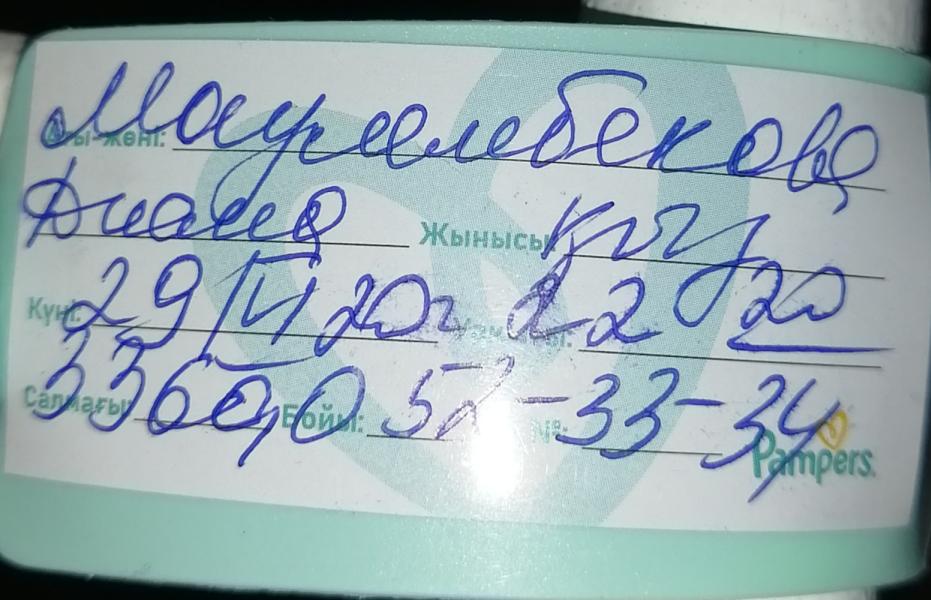 Аты-жөні: Маусымбекова
Диана Жынысы: қыз
Күні: 29/IV 20г Уақыты: 22 20
Салмағы: 3360,0 Бойы: 52 №: -33-34
Pampers.